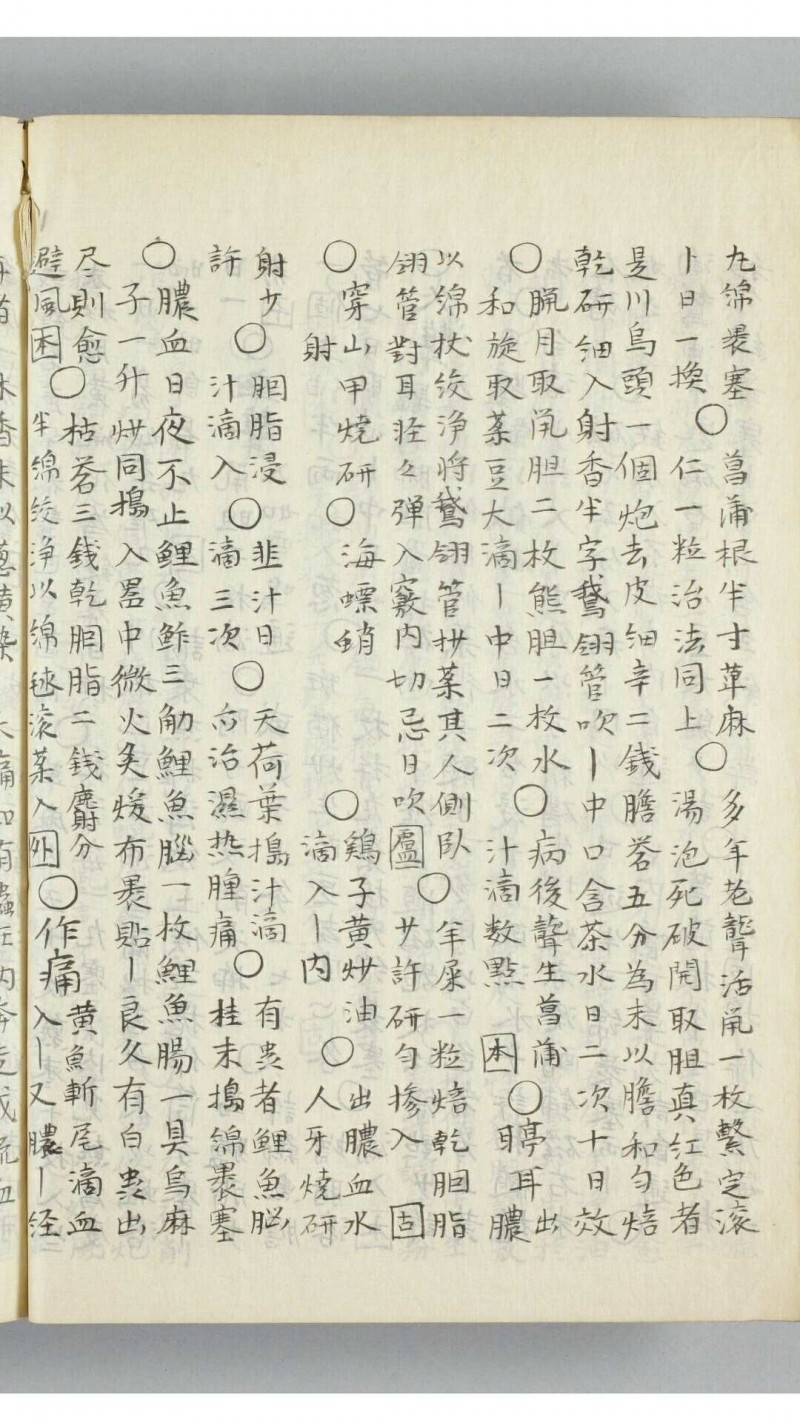 丸綿裹塞 ○ 菖蒲根半寸萆麻 ○ 多年老聾活鼠一枚繫定滚
丨日一換 仁一粒治法同上 湯泡死破開取胆真红色者
是川烏頭一個炮去皮細辛二錢膽礬五分為末以膽和匀焙
乾研細入射香半字鵝翎管吹丨中口含茶水日二次十日效
○ 臘月取鼠胆二枚熊胆一枚水 ○ 病後聾生菖蒲 ○ 聤耳出
和旋取菉豆大滴丨中日二次 汁滴数點 困 膿
以綿杖绞净將鵝翎管抄药其人側臥 ○ 羊屎一粒焙乾胭脂
翎管對耳轻々弹入竅内切忌日吹 盧 少許研匀掺入 固
○ 穿山甲烧研 ○ 海螵蛸 ○ 鷄子黄炒油 ○ 出膿血水
射 滴入丨内 人牙烧研
射少 ○ 胭脂浸 ○ 韭汁日 ○ 天荷葉搗汁滴 ○ 有虫者鲤魚脳
許一 汁滴入 滴三次 亦治濕热腫痛 桂末搗綿裹塞
○ 膿血日夜不止鲤魚鲊三觔鲤魚腦一枚鲤魚腸一具烏麻
子一升炒同搗入器中微火炙煖布裹貼丨良久有白虫出
尽則愈 ○ 枯礬三錢乾胭脂二錢麝分 ○ 作痛 黄魚斬尾滴血
避風 困 半綿绞净以綿毬滚药入 外 入丨又膿丨经